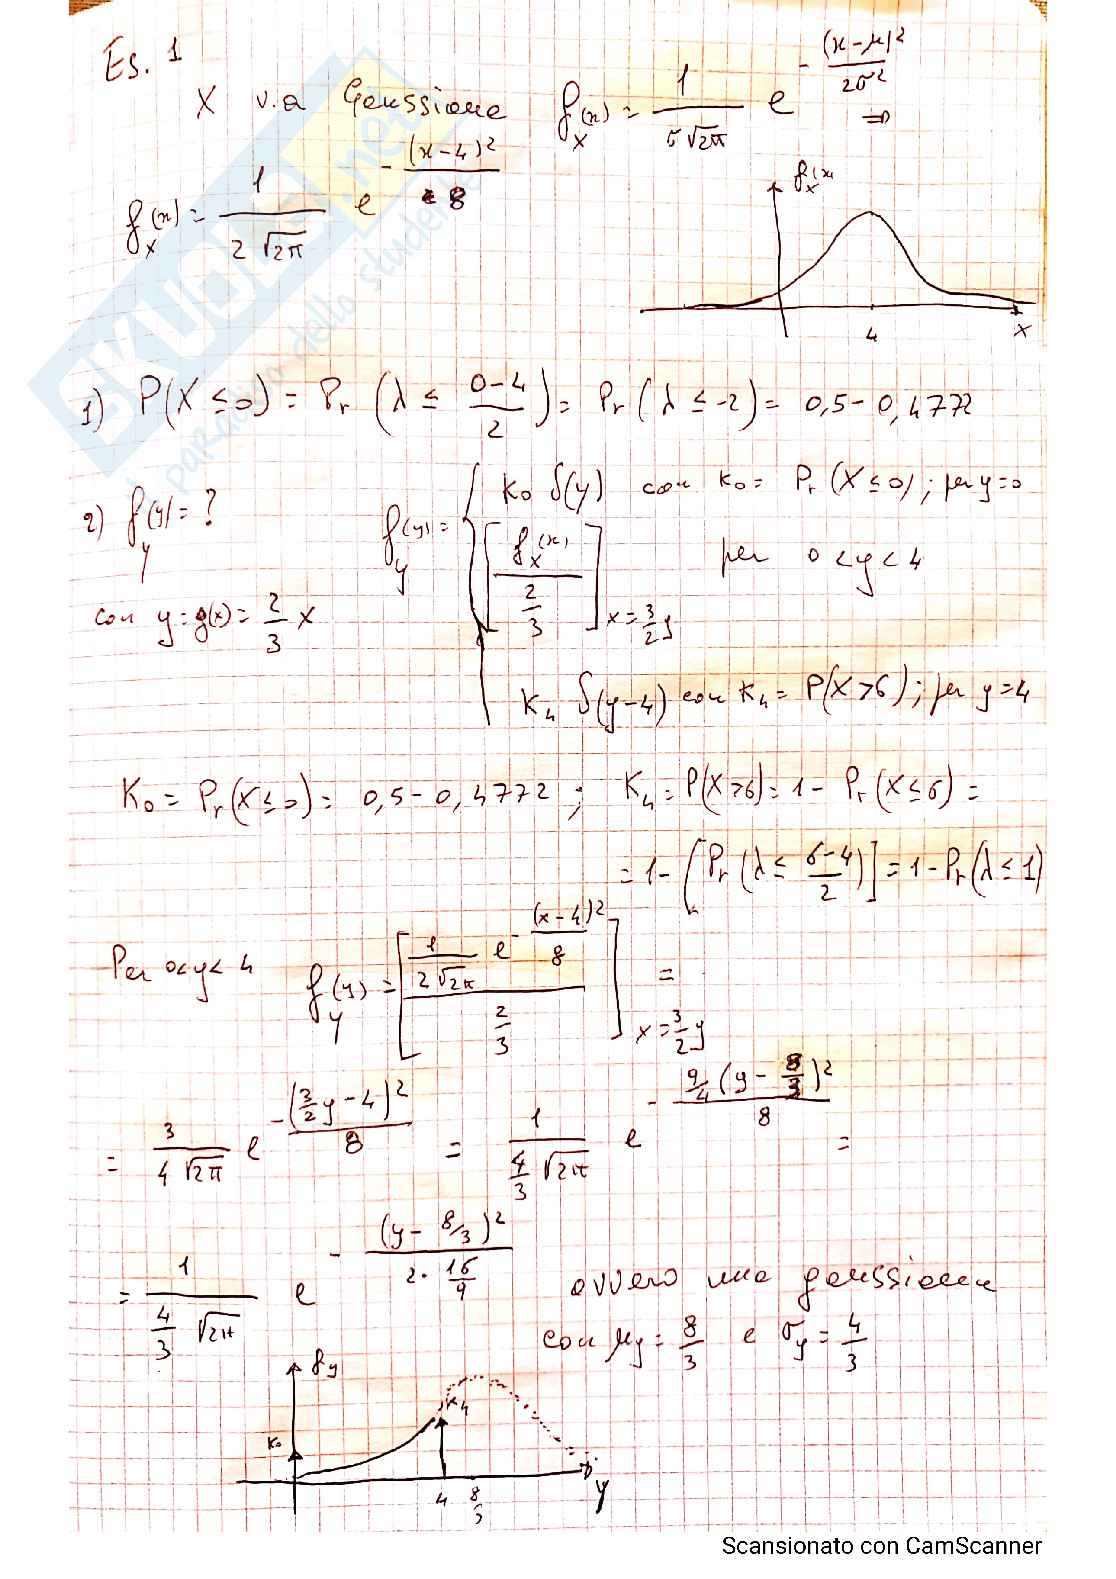 Es. 1
X v.a Gaussiana f_X(x) = 1/(σ√2π) e^-(x-μ)²/2σ² ⇒
f_X(x) = 1/(2√2π) e^-(x-4)²/8
f_X(x
4 x
1) P(X ≤ 0) = Pr (λ ≤ (0-4)/2) = Pr (λ ≤ -2) = 0,5 - 0,4772
2) f_Y(y) = ? f_Y(y) = { K₀ δ(y) con K₀ = Pr (X ≤ 0) ; per y=0
[f_X(x) / (2/3)] x = 3/2 y per 0 < y < 4
con y = g(x) = 2/3 x
K₄ δ(y-4) con K₄ = P(X > 6) ; per y = 4
K₀ = Pr(X ≤ 0) = 0,5 - 0,4772 ; K₄ = P(X > 6) = 1 - Pr (X ≤ 6) =
= 1 - [Pr (λ ≤ (6-4)/2)] = 1 - Pr(λ ≤ 1)
Per 0<y<4 f_Y(y) = [1/(2√2π) e^-(x-4)²/8 / (2/3)] x = 3/2 y =
= 3/(4√2π) e^-(3/2 y - 4)²/8 = 1/(4/3 √2π) e^-9/4 (y - 8/3)²/8 =
= 1/(4/3 √2π) e^-(y - 8/3)²/(2·16/9) ovvero una gaussiana
con μy = 8/3 e σy = 4/3
fy
K₀ K₄
4 8/3 y
SKUOLA.net
paradiso dello studente
Scansionato con CamScanner